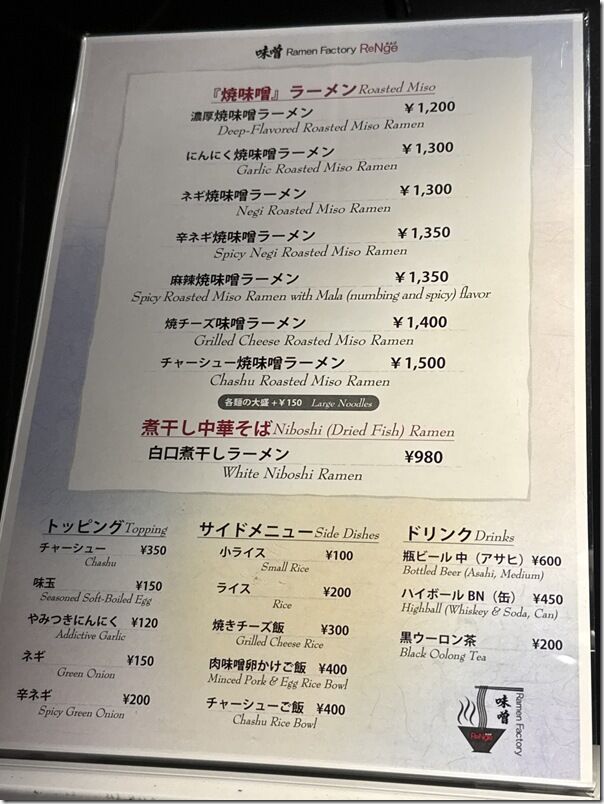 味噌 Ramen Factory ReNge
『焼味噌』ラーメン Roasted Miso
濃厚焼味噌ラーメン ¥1,200
Deep-Flavored Roasted Miso Ramen
にんにく焼味噌ラーメン ¥1,300
Garlic Roasted Miso Ramen
ネギ焼味噌ラーメン ¥1,300
Negi Roasted Miso Ramen
辛ネギ焼味噌ラーメン ¥1,350
Spicy Negi Roasted Miso Ramen
麻辣焼味噌ラーメン ¥1,350
Spicy Roasted Miso Ramen with Mala (numbing and spicy) flavor
焼チーズ味噌ラーメン ¥1,400
Grilled Cheese Roasted Miso Ramen
チャーシュー焼味噌ラーメン ¥1,500
Chashu Roasted Miso Ramen
各麺の大盛+¥150 Large Noodles
煮干し中華そば Niboshi (Dried Fish) Ramen
白口煮干しラーメン ¥980
White Niboshi Ramen
トッピング Topping
チャーシュー ¥350
Chashu
味玉 ¥150
Seasoned Soft-Boiled Egg
やみつきにんにく ¥120
Addictive Garlic
ネギ ¥150
Green Onion
辛ネギ ¥200
Spicy Green Onion
サイドメニュー Side Dishes
小ライス ¥100
Small Rice
ライス ¥200
Rice
焼きチーズ飯 ¥300
Grilled Cheese Rice
肉味噌卵かけご飯 ¥400
Minced Pork & Egg Rice Bowl
チャーシューご飯 ¥400
Chashu Rice Bowl
ドリンク Drinks
瓶ビール 中（アサヒ） ¥600
Bottled Beer (Asahi, Medium)
ハイボール BN（缶） ¥450
Highball (Whiskey & Soda, Can)
黒ウーロン茶 ¥200
Black Oolong Tea
味噌
Ramen Factory
ReNge